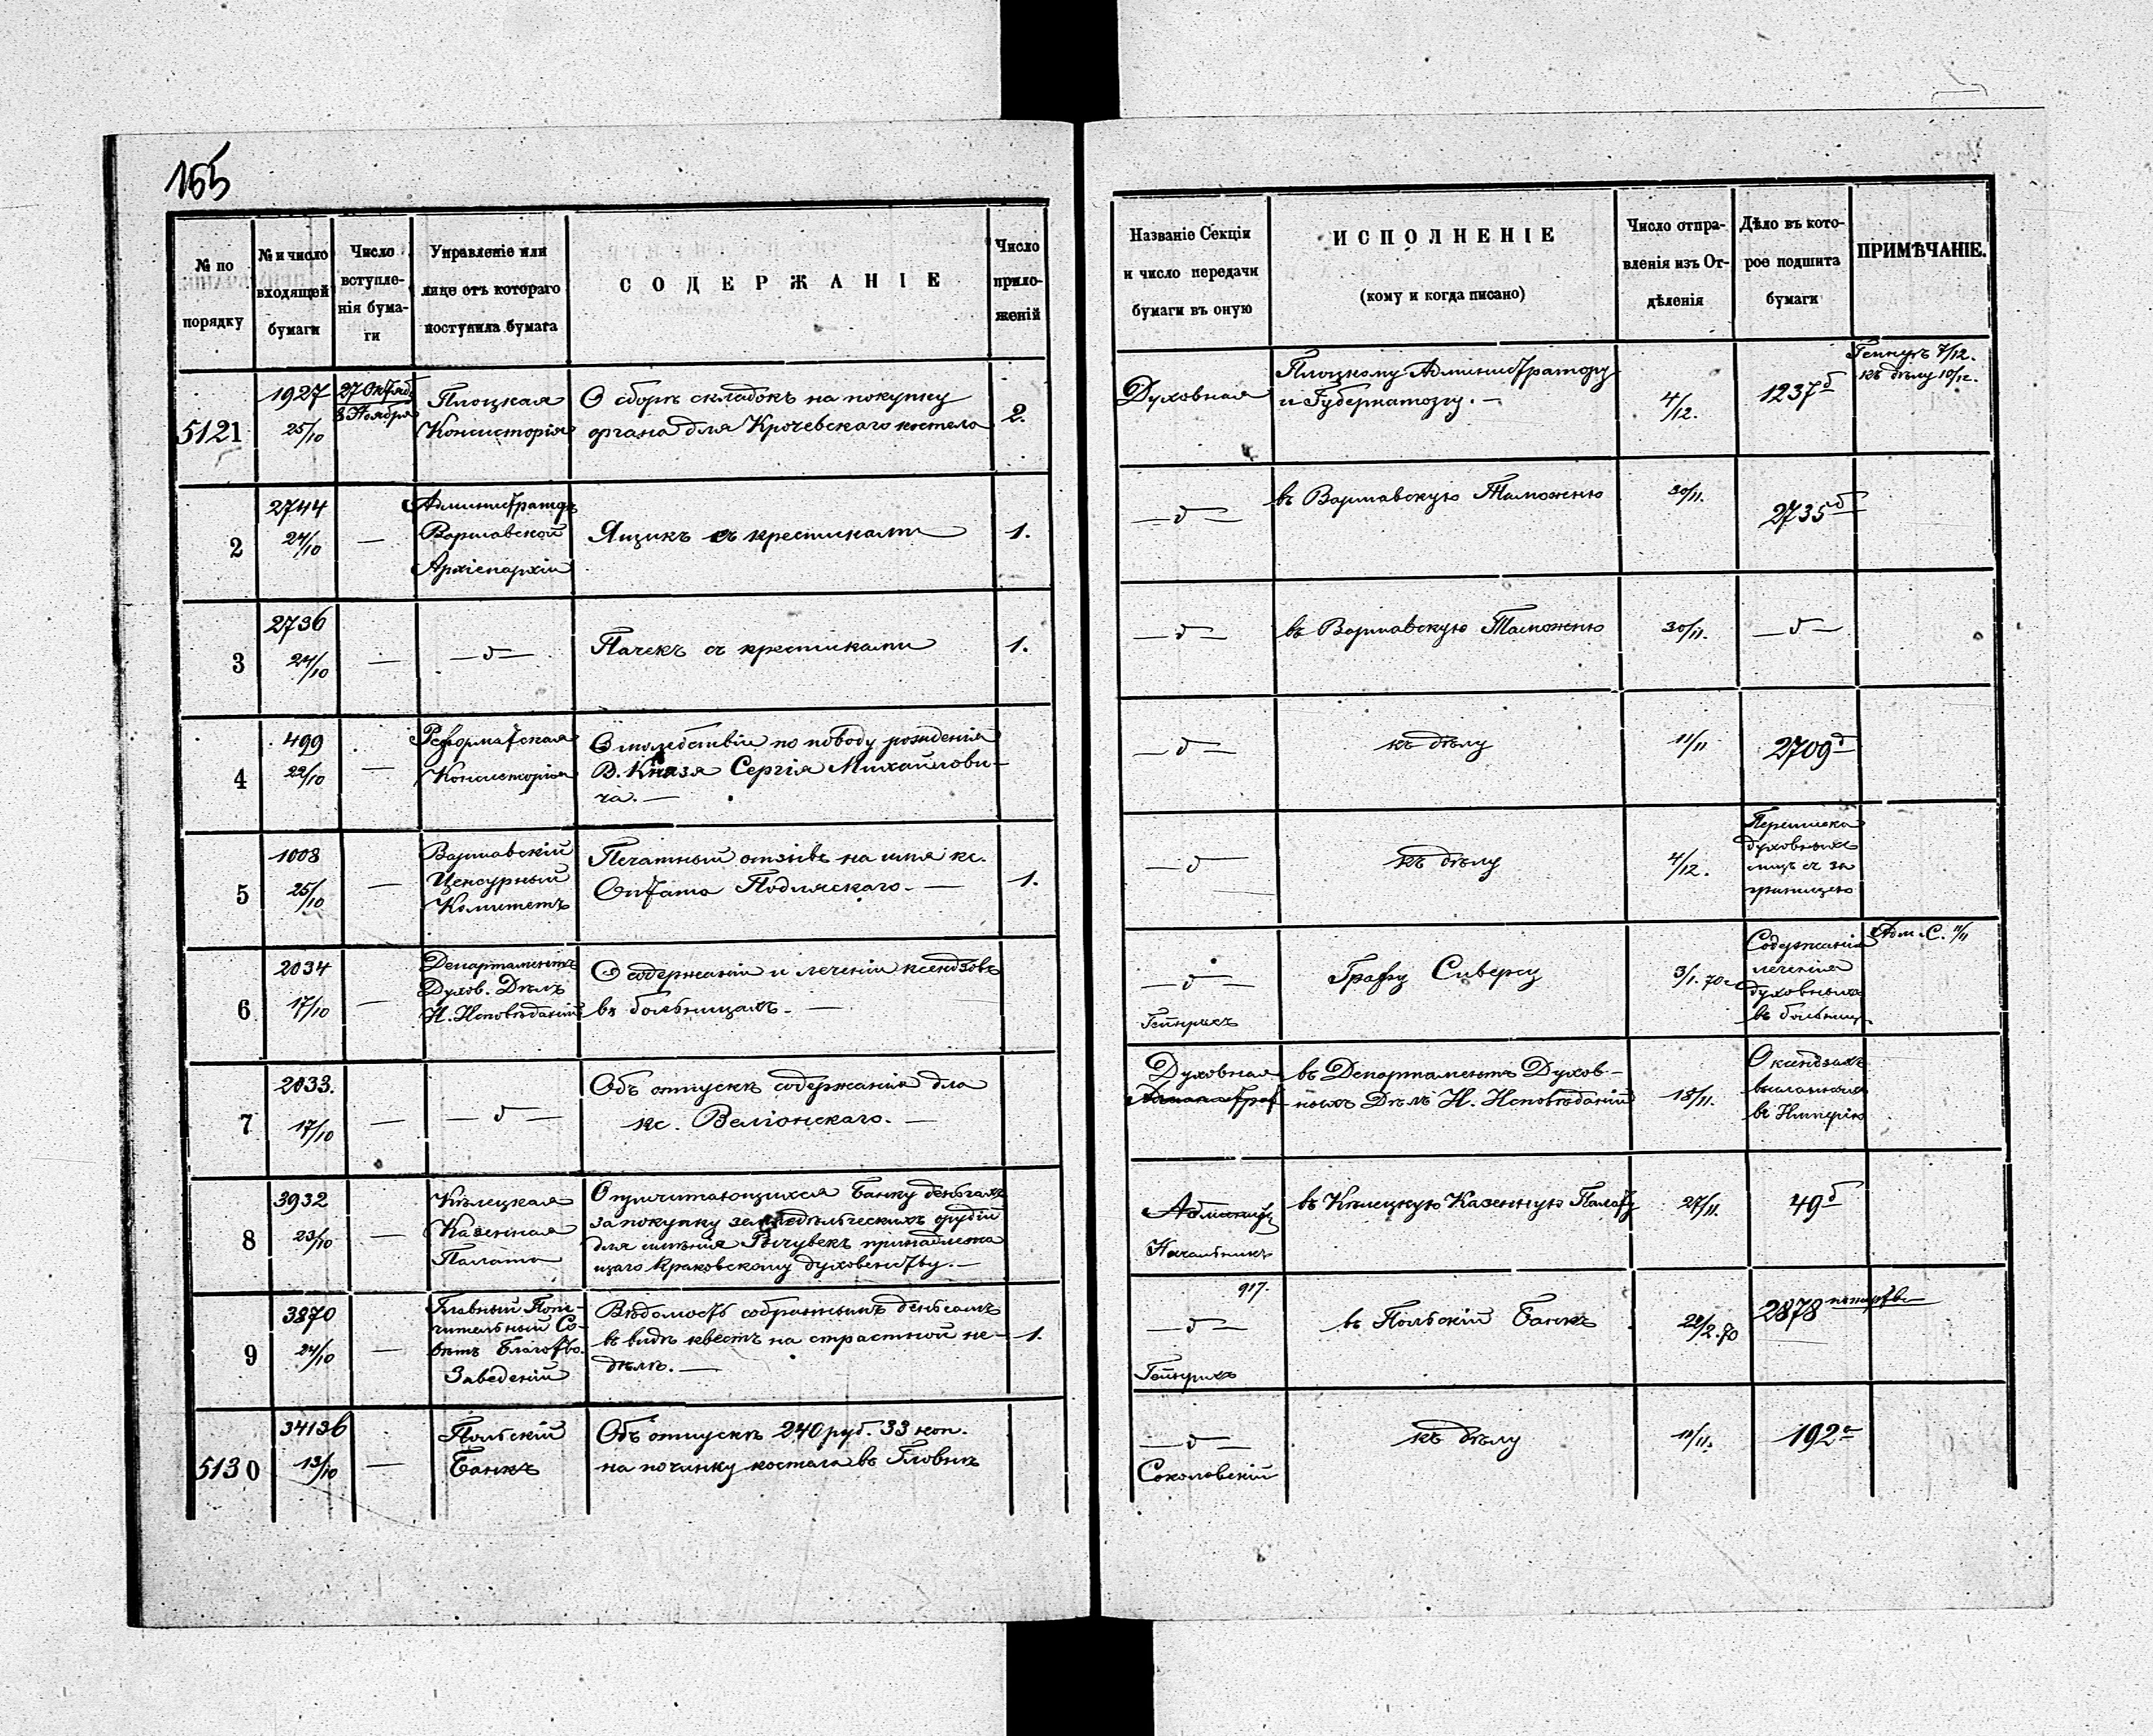 155
№ по порядку
№ и число входящей бумаги
Число вступленія бумаги
Управленіе или лице отъ котораго поступила бумага
СОДЕРЖАНІЕ
Число приложеній
Названіе Секціи и число передачи бумаги въ оную
ИСПОЛНЕНІЕ
(кому и когда писано)
Число отправленія изъ Отдѣленія
Дѣло въ которое подшита бумаги
ПРИМѢЧАНІЕ.
5121
1927
25/10
27 Октяб.
8 Ноября
Плоцкая
Консисторія
О сборѣ складокъ на покупку
органа для Крочевскаго костела
2.
Духовная
Плоцкому Администратору
и Губернатору. —
4/12.
1237 б
7/12.
къ дѣлу 10/12.
2
2744
24/10
—
Администраторъ
Варшавской
Архіепархіи
Ящикъ съ крестиками
1.
— д —
въ Варшавскую Таможню
30/11.
2735 б
3
2736
24/10
—
— д —
Пачекъ съ крестиками
1.
— д —
въ Варшавскую Таможню
30/11.
— д —
4
499
22/10
—
Реформатская
Консисторія
О молебствіи по поводу рожденія
В. Князя Сергія Михайлови-
ча. —
— д —
къ дѣлу
11/11
2709 д
5
1008
25/10
—
Варшавскій
Цензурный
Комитетъ
Печатный отзывъ на имя кс.
Оптата Подляскаго. —
1.
— д —
къ дѣлу
4/12.
Переписка
духовныхъ
лицъ съ за
границею
6
2034
17/10
—
Департаментъ
Духов. Дѣлъ
И. Исповѣданій
О содержаніи и леченіи ксендзовъ
въ больницахъ. —
— д —
Гейнрихъ
Графу Сиверсу
3/1. 70 г
Содержаніе
леченія
духовныхъ
въ больниц.
Адм. С. 11/11
7
2033.
17/10
—
— д —
Объ отпускѣ содержанія для
кс. Веліонскаго. —
Духовная
въ Департаментъ Духов-
ныхъ Дѣлъ И. Исповѣданій
18/11.
О ксендзахъ
высланныхъ
въ Имперію
8
3932
23/10
—
Кѣлецкая
Казенная
Палата
О причитающихся Банку деньгахъ
за покупку земледѣльческихъ орудій
для имѣнія принадлежа
щаго Краковскому духовенству. —
Начальникъ
въ Кѣлецкую Казенную Палату
27/11.
49 б
9
3870
24/10
—
Главный Попе-
чительный Со-
вѣтъ Благотво.
Заведеній
Вѣдомость собраннымъ деньгамъ
въ видѣ квестъ на страстной не-
дѣлѣ. —
1.
917.
— д —
Гейнрихъ
въ Польскій Банкъ
22/2. 70
2878
5130
34136
13/10
—
Польскій
Банкъ
Объ отпускѣ 240 руб. 33 коп.
на починку костела въ Гловнѣ
— д —
Соколовскій
къ дѣлу
11/11.
192 а